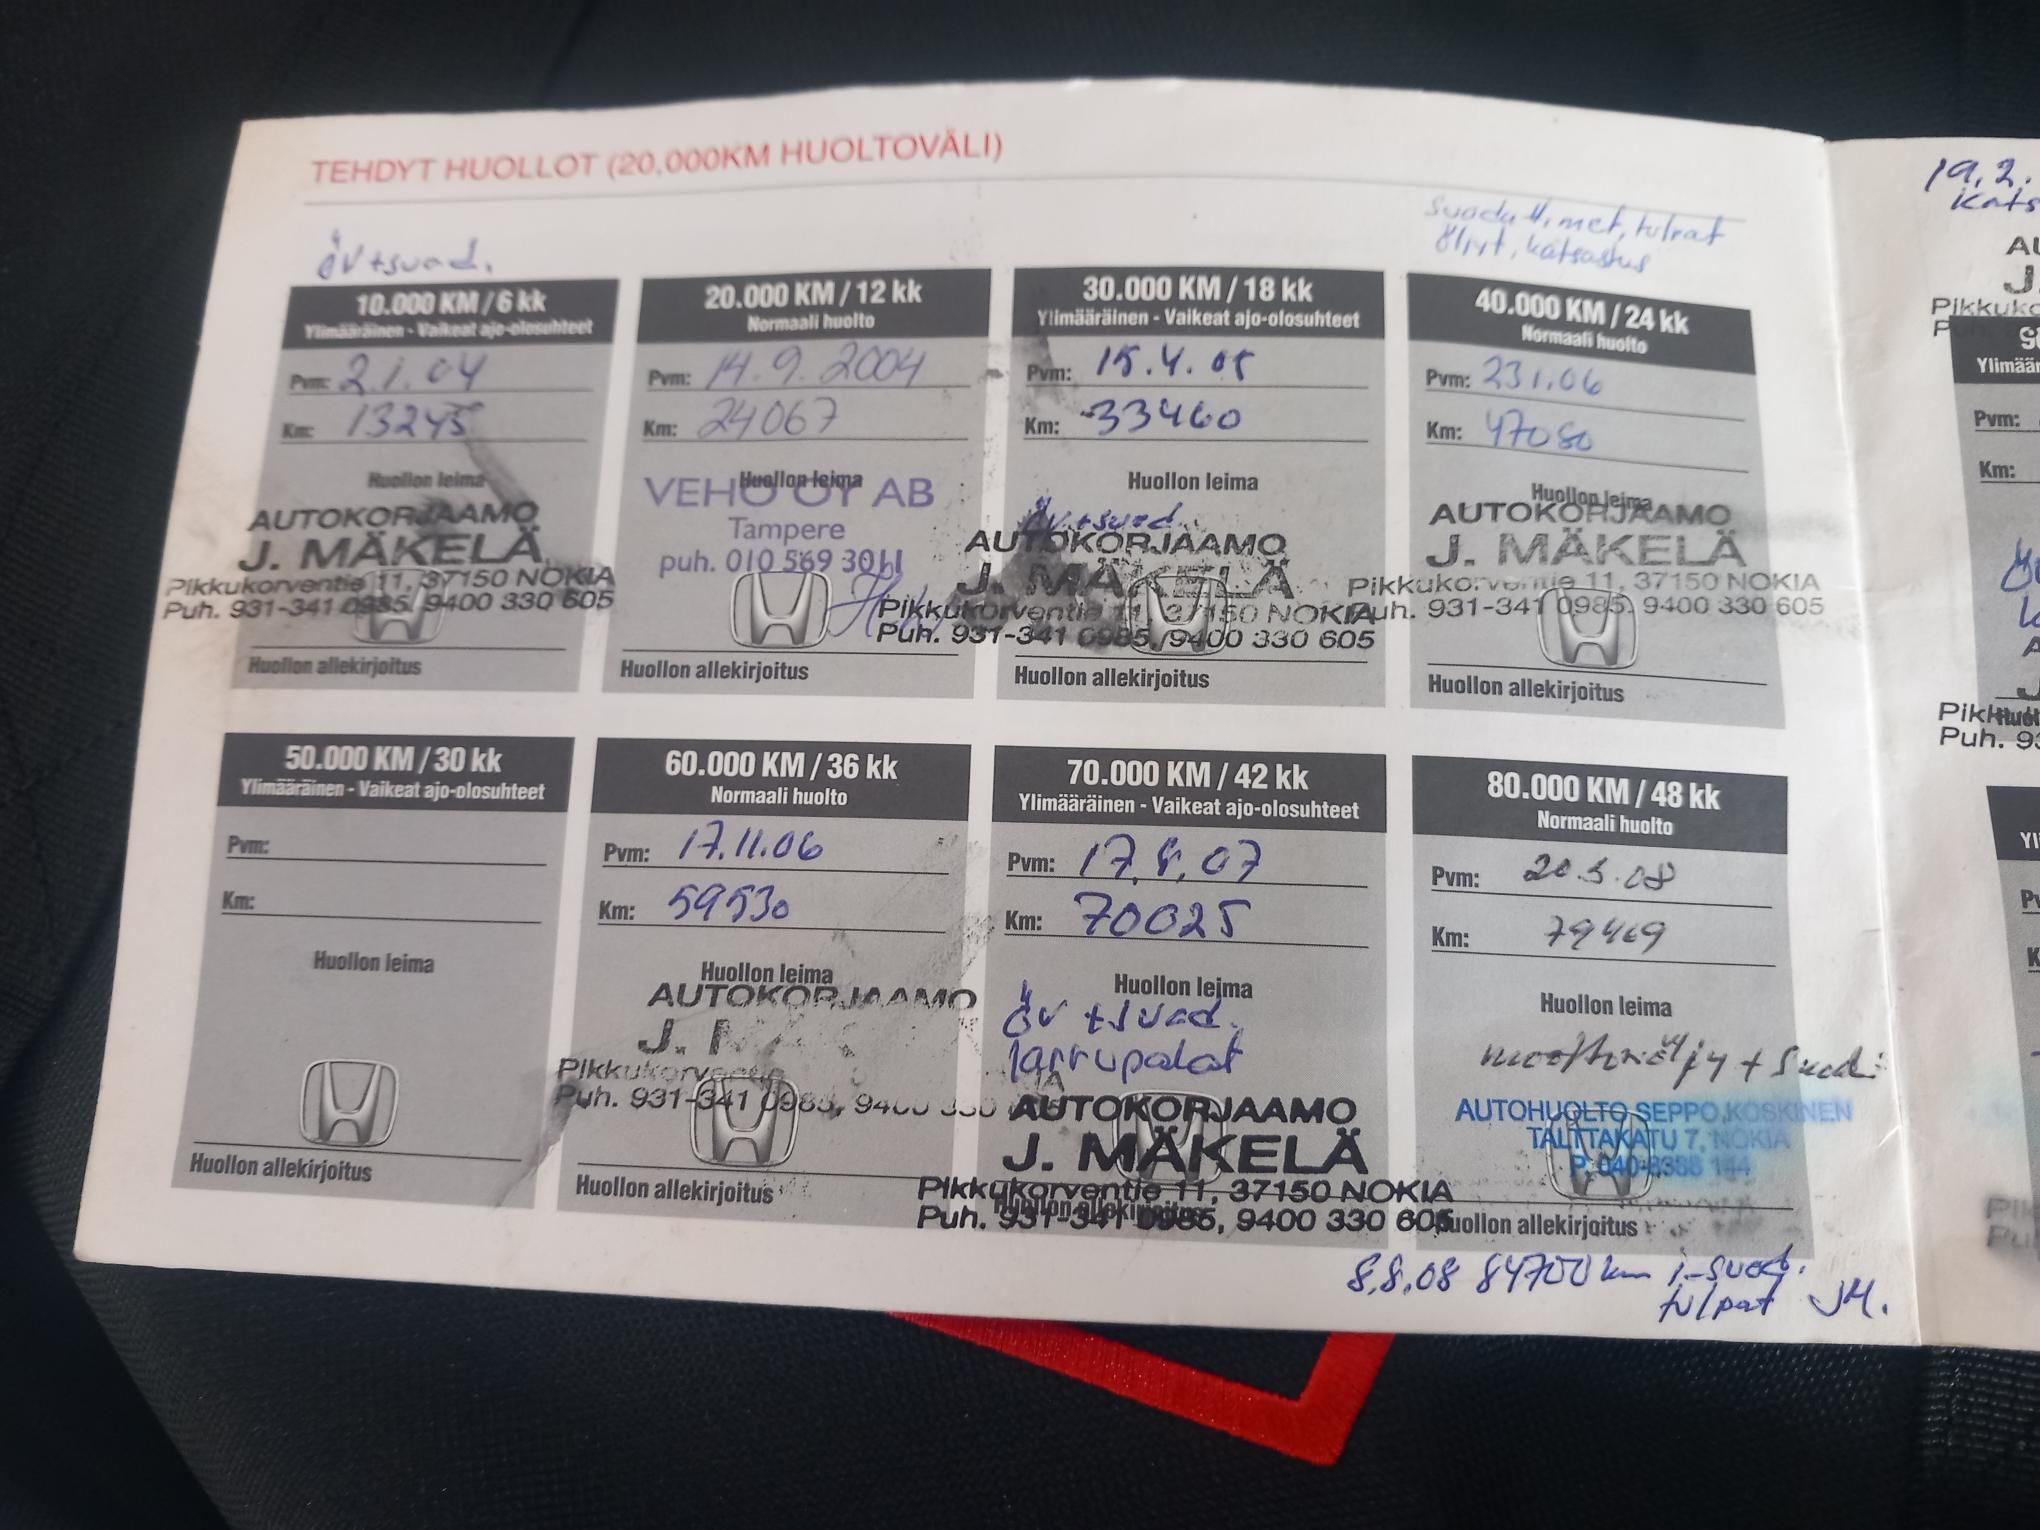 TEHDYT HUOLLOT (20,000KM HUOLTOVÄLI)
öv+suod.
10.000 KM / 6 kk
Ylimääräinen - Vaikeat ajo-olosuhteet
Pvm: 2.1.04
Km: 13245
Huollon leima
AUTOKORJAAMO
J. MÄKELÄ
Pikkukorventie 11, 37150 NOKIA
Puh. 931-341 0985, 9400 330 605
Huollon allekirjoitus
20.000 KM / 12 kk
Normaali huolto
Pvm: 14.9.2004
Km: 24067
Huollon leima
VEHO OY AB
Tampere
puh. 010 569 3011
Huollon allekirjoitus
30.000 KM / 18 kk
Ylimääräinen - Vaikeat ajo-olosuhteet
Pvm: 15.4.05
Km: 33460
Huollon leima
öv+suod
AUTOKORJAAMO
J. MÄKELÄ
Pikkukorventie 11, 37150 NOKIA
Puh. 931-341 0985, 9400 330 605
Huollon allekirjoitus
öljyt, katsastus
40.000 KM / 24 kk
Normaali huolto
Pvm: 23.1.06
Km: 47080
Huollon leima
AUTOKORJAAMO
J. MÄKELÄ
Pikkukorventie 11, 37150 NOKIA
Puh. 931-341 0985, 9400 330 605
Huollon allekirjoitus
50.000 KM / 30 kk
Ylimääräinen - Vaikeat ajo-olosuhteet
Pvm:
Km:
Huollon leima
Huollon allekirjoitus
60.000 KM / 36 kk
Normaali huolto
Pvm: 17.11.06
Km: 59530
Huollon leima
AUTOKORJAAMO
J. M
Pikkukorventie
Puh. 931-341 0985, 9400 330
Huollon allekirjoitus
70.000 KM / 42 kk
Ylimääräinen - Vaikeat ajo-olosuhteet
Pvm: 17.8.07
Km: 70025
Huollon leima
öv +suod.
jarrupalat
AUTOKORJAAMO
J. MÄKELÄ
Pikkukorventie 11, 37150 NOKIA
Huollon allekirjoitus
Puh. 931-341 0985, 9400 330 605
80.000 KM / 48 kk
Normaali huolto
Pvm: 20.5.08
Km: 79469
Huollon leima
moottoriöljy + Suod.
AUTOHUOLTO SEPPO KOSKINEN
TALTTAKATU 7, NOKIA
P. 040-8388 144
Huollon allekirjoitus
8.8.08 84700 km i-suod.
tulpat JM.
19.2.
Kats
AU
J.
Pikkuko
Ylimäär
Pvm:
Km:
Pikk
Puh. 93